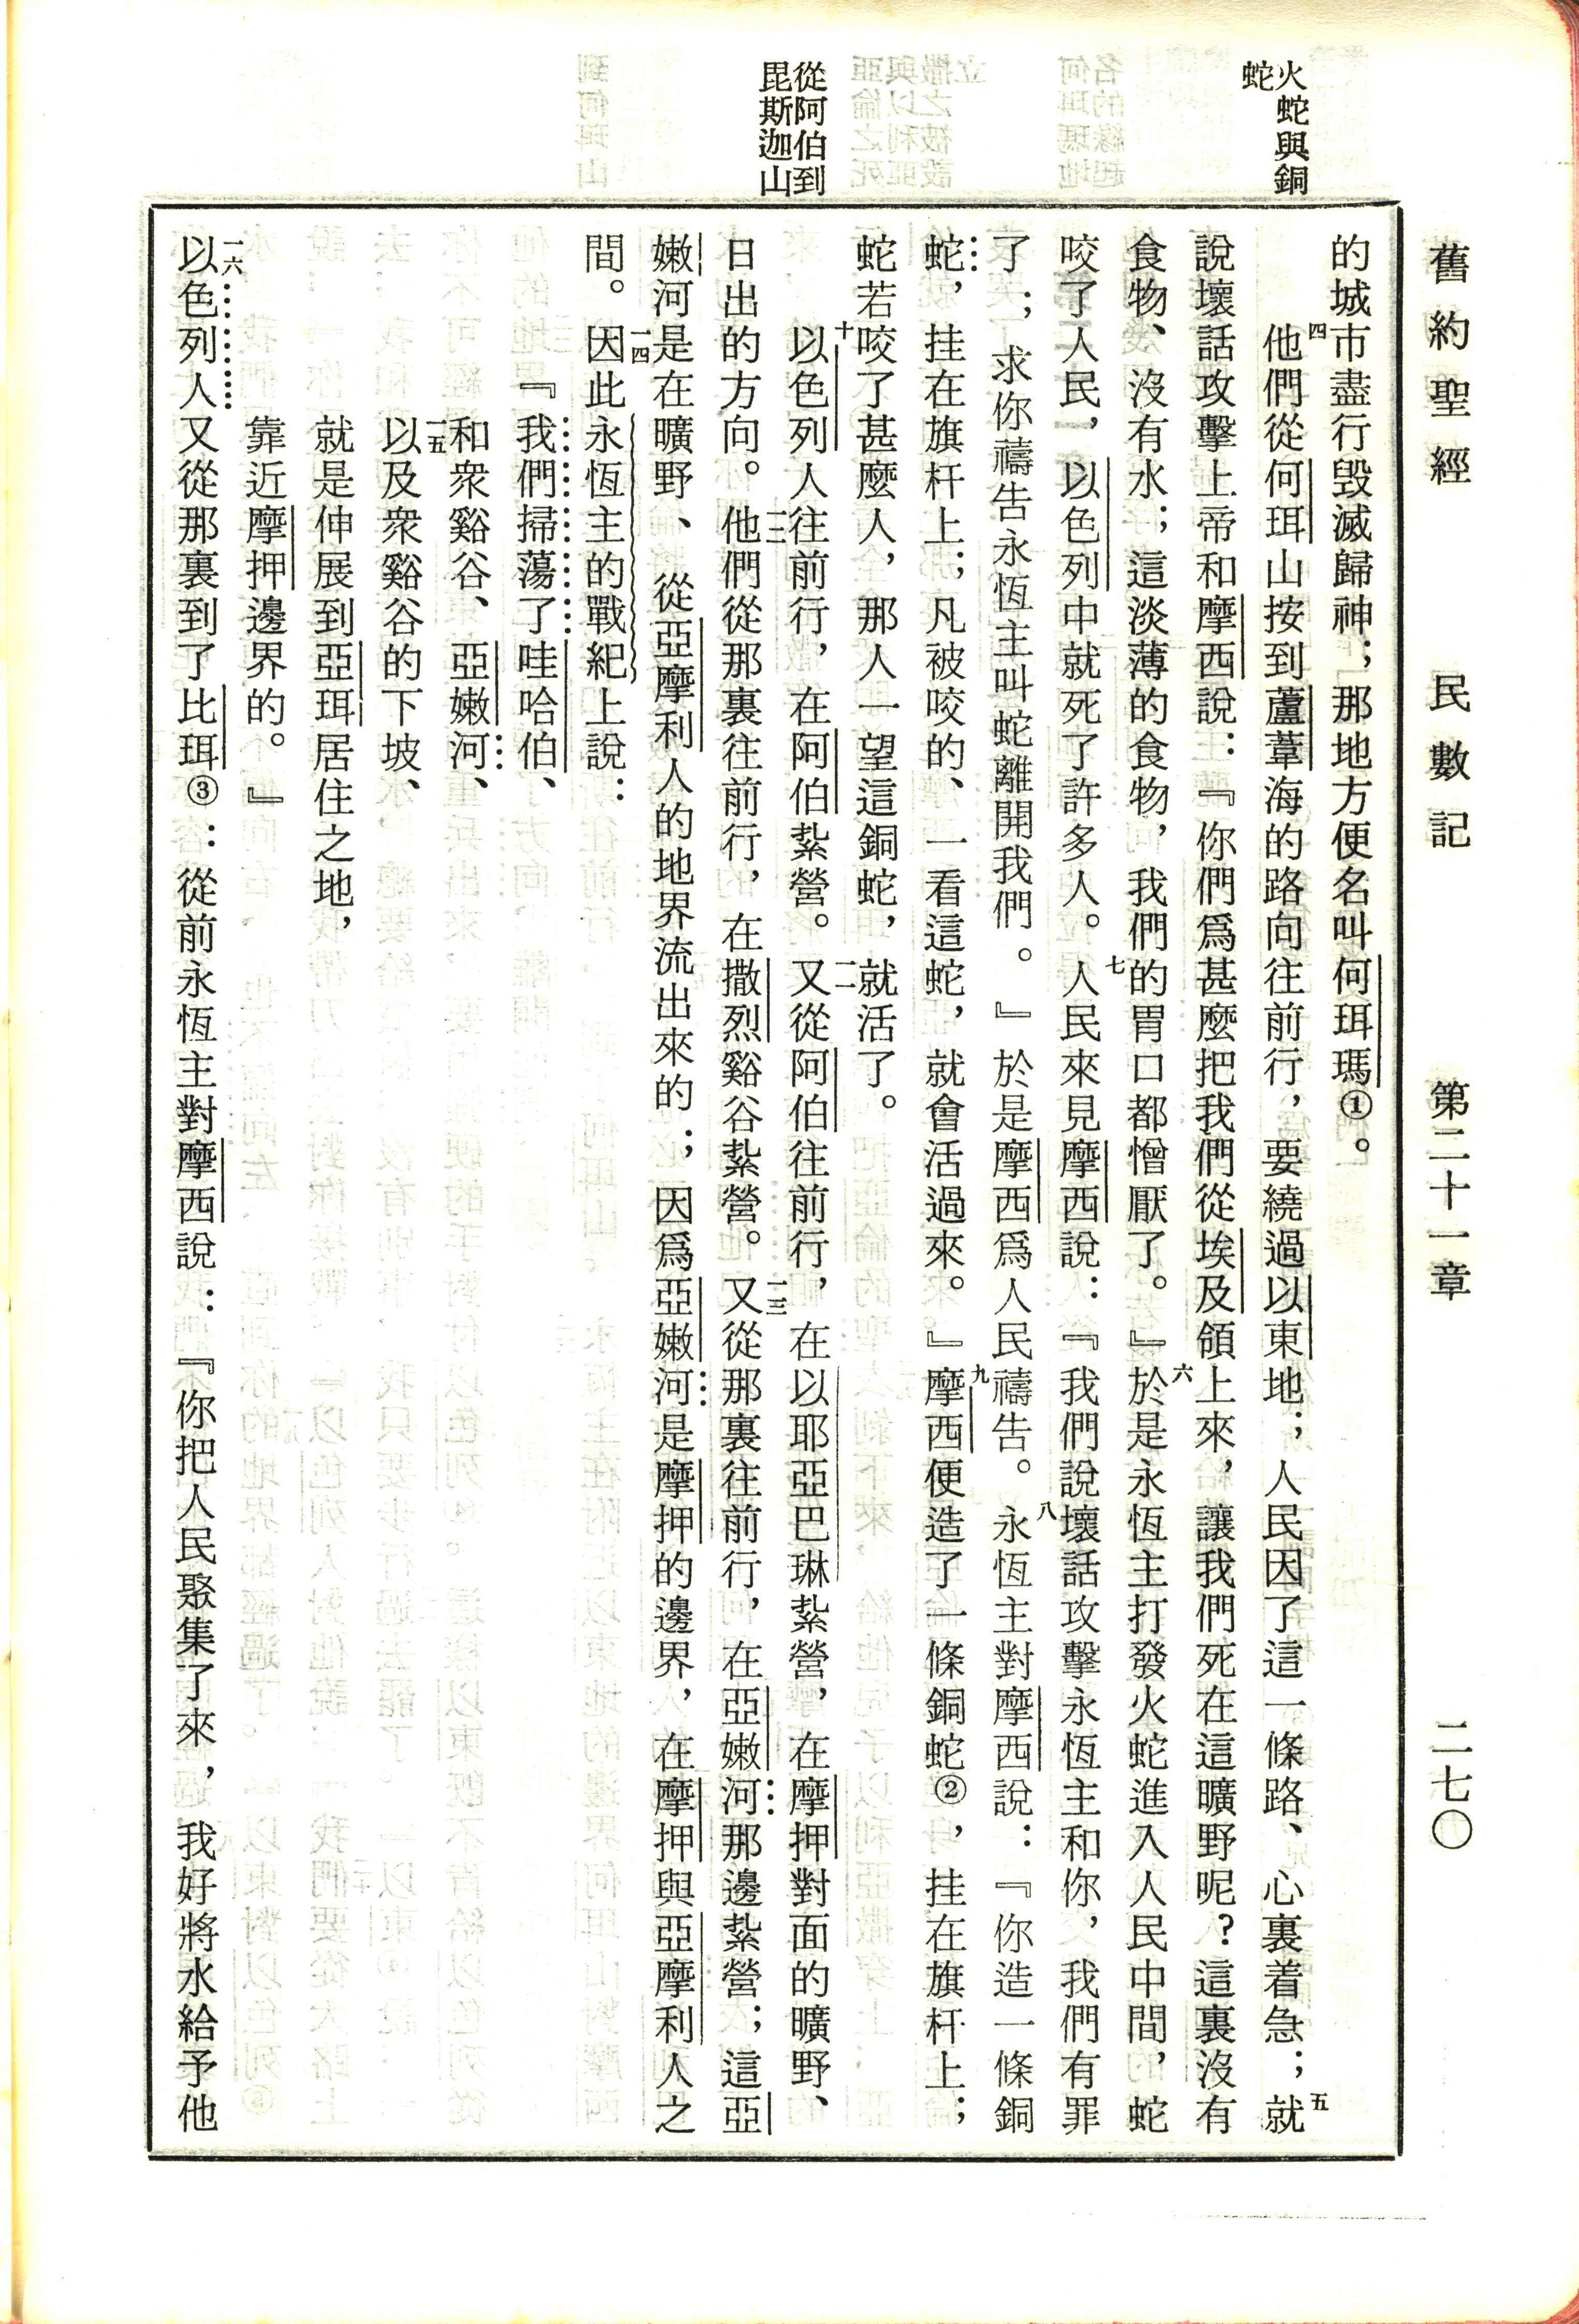 舊約聖經　民數記　第二十一章　二七〇
火蛇與銅
蛇
從阿伯到
毘斯迦山
的城市盡行毀滅歸神；那地方便名叫何珥瑪①。
四他們從何珥山按到蘆葦海的路向往前行，要繞過以東地；人民因了這一條路、心裏着急；五就
說壞話攻擊上帝和摩西說：『你們爲甚麼把我們從埃及領上來，讓我們死在這曠野呢？這裏沒有
食物、沒有水；這淡薄的食物，我們的胃口都憎厭了。』六於是永恆主打發火蛇進入人民中間，蛇
咬了人民，以色列中就死了許多人。七人民來見摩西說：『我們說壞話攻擊永恆主和你，我們有罪
了；求你禱告永恆主叫蛇離開我們。』於是摩西爲人民禱告。八永恆主對摩西說：『你造一條銅
蛇，挂在旗杆上；凡被咬的、一看這蛇，就會活過來。』九摩西便造了一條銅蛇②，挂在旗杆上；
蛇若咬了甚麼人，那人一望這銅蛇，就活了。
十以色列人往前行，在阿伯紮營。一一又從阿伯往前行，在以耶亞巴琳紮營，在摩押對面的曠野、
日出的方向。一二他們從那裏往前行，在撒烈谿谷紮營。一三又從那裏往前行，在亞嫩河那邊紮營；這亞
嫩河是在曠野、從亞摩利人的地界流出來的；因爲亞嫩河是摩押的邊界，在摩押與亞摩利人之
間。一四因此永恆主的戰紀上說：
『我們掃蕩了哇哈伯、
和衆谿谷、亞嫩河、
一五以及衆谿谷的下坡、
就是伸展到亞珥居住之地，
靠近摩押邊界的。』
一六以色列人又從那裏到了比珥③：從前永恆主對摩西說：『你把人民聚集了來，我好將水給予他